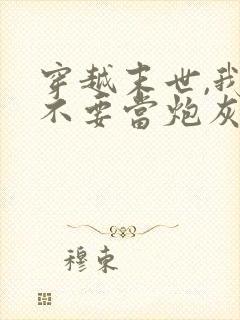 穿越末世,我
不要当炮灰
穆束